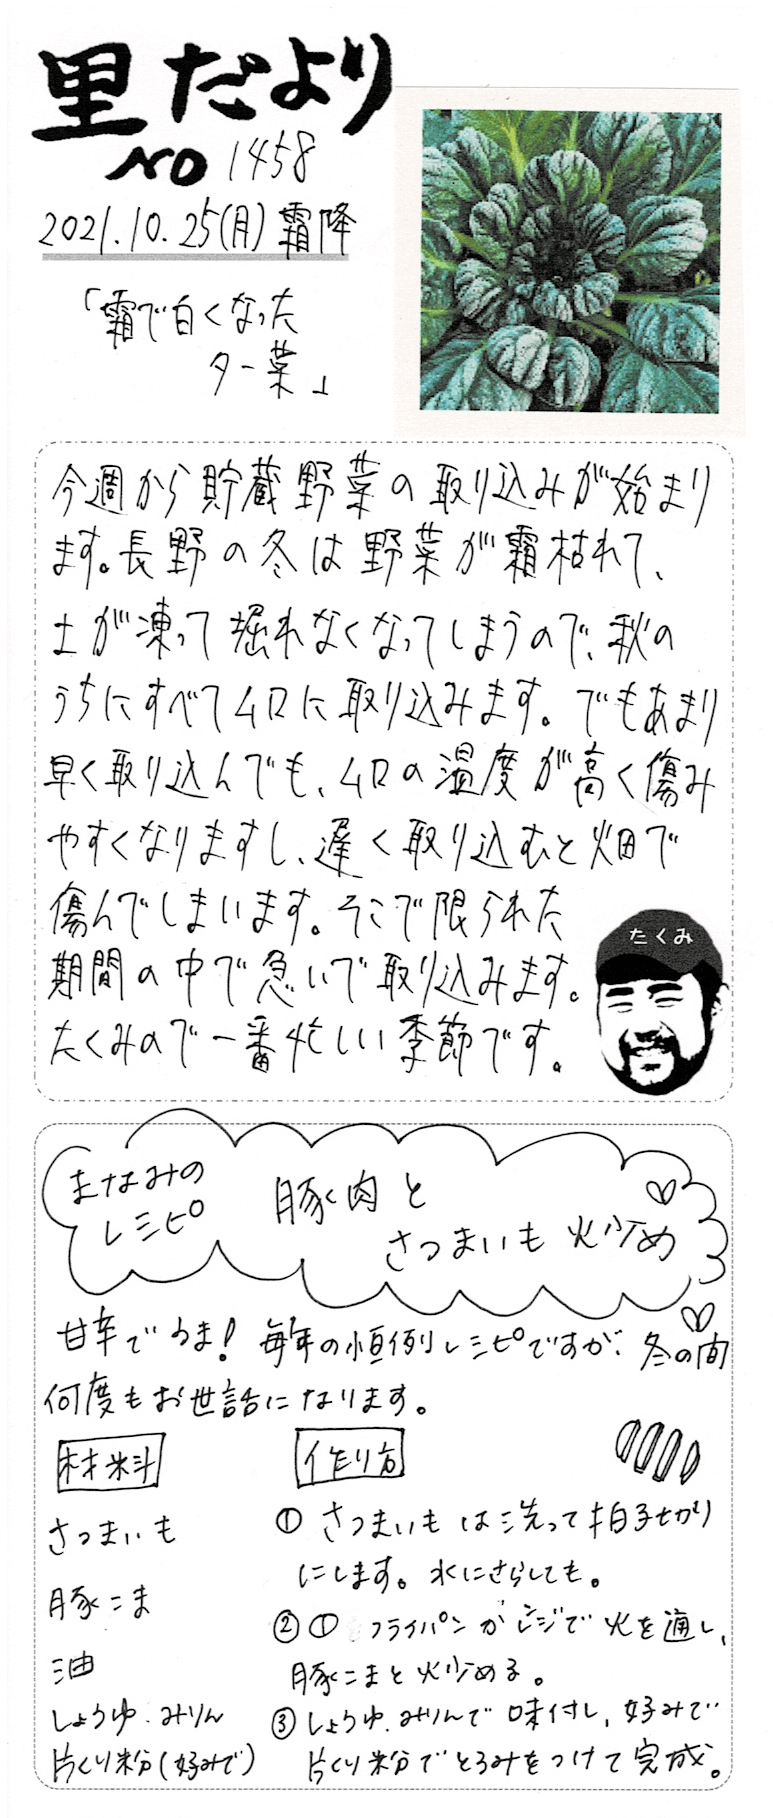 里だより
NO 1458
2021.10.25(月)霜降
「霜で白くなった
ター菜」
今週から貯蔵野菜の取り込みが始まり
ます。長野の冬は野菜が霜枯れて、
土が凍って掘れなくなってしまうので、秋の
うちにすべてムロに取り込みます。でもあまり
早く取り込んでも、ムロの温度が高く傷み
やすくなりますし、遅く取り込むと畑で
傷んでしまいます。そこで限られた
期間の中で急いで取り込みます。
たくみので一番忙しい季節です。
たくみ
まなみの
レシピ
豚肉と
さつまいも炒め
甘辛でうま！毎年の恒例レシピですが、冬の間
何度もお世話になります。
材料
さつまいも
豚こま
油
しょうゆ、みりん
片くり粉(好みで)
作り方
① さつまいもは洗って拍子切り
にします。水にさらしても。
② ① フライパンかレンジで火を通し、
豚こまと炒める。
③ しょうゆ、みりんで味付し、好みで
片くり粉でとろみをつけて完成。